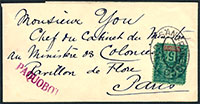 Monsieur You
Chef du Cabinet du Ministre
au Ministère des Colonies
Pavillon de Flore
Paris
PAQUEBOT